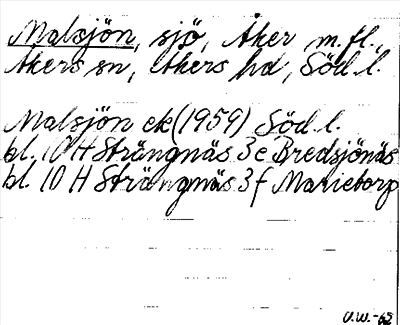 Malsjön, sjö, Åker m.fl.,
Åkers sn, Åkers hd, Söd.l.
Malsjön ek (1959) Söd.l.
bl. 10 H Strängnäs 3e Bredsjönäs
bl. 10 H Strängnäs 3f Marietorp
U.W.-62